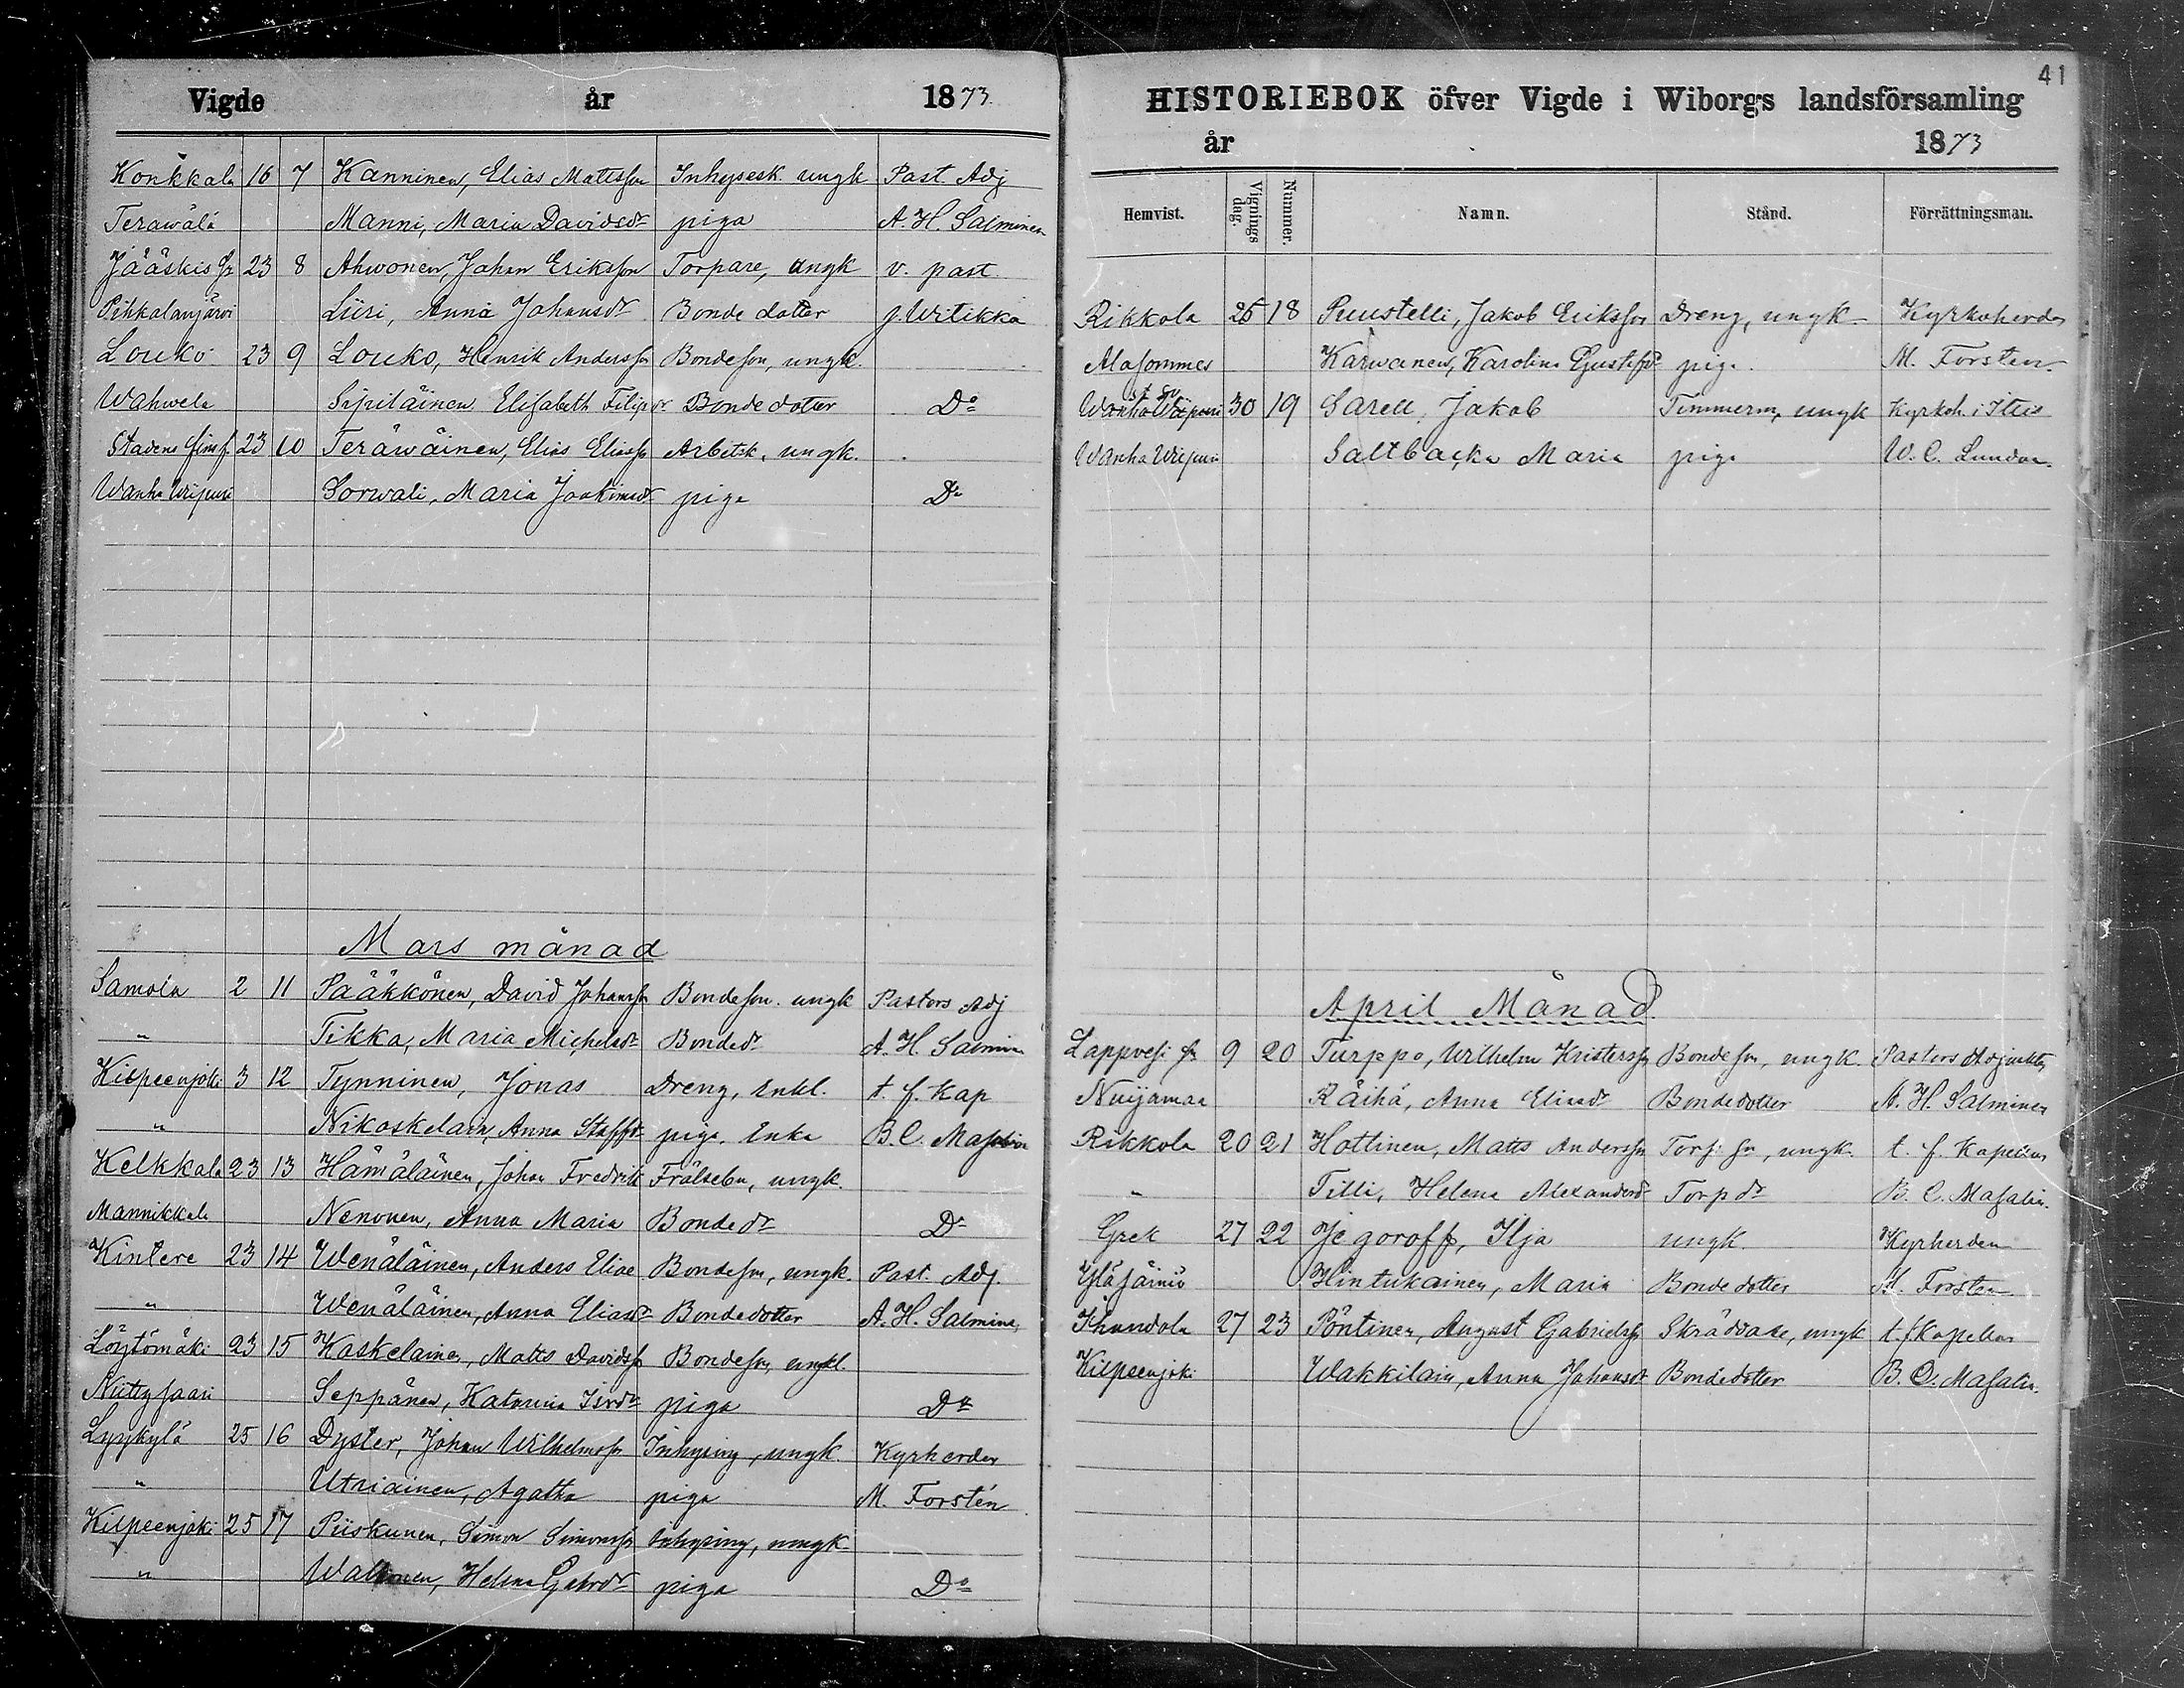 Vigde år 1873.
Konkkala 16 7 Kanninen, Elias Mattsson Inhysesk. ungk Past. Adj
Terawälä Manni, Maria Davidsdr piga A. H. Salminen
Jääskis fr 23 8 Ahwonen, Johan Eriksson Torpare, ungk v. past.
Pihkalanjärvi Liiri, Anna Johansdr Bonde dotter J. Witikka
Louko 23 9 Louko, Henrik Andersson Bondeson, ungk.
Wahwela Sipiläinen Elisabeth Filipdr Bondedotter Do
Stadens finsf. 23 10 Teräwäinen, Elias Eliasson Arbetsk, ungk.
Wanha Wiipuri Sorwali, Maria Joakimsdr piga Do
Mars månad
Samola 2 11 Pääkkönen, David Johansson Bondeson. ungk Pastors Adj
" Tikka, Maria Michelsdr Bondedr A. H. Salmin
Kilpeenjoki 3 12 Tynninen, Jonas Dreng, Enkl. t. f. Kap
" Nikoskelain, Anna Staffsdr piga. Enka B. C. Masalin
Kelkkala 23 13 Hämäläinen, Johan Fredrik Frälsebn, ungk.
Mannikkala Nenonen, Anna Maria Bondedr Do
Kintere 23 14 Wenäläinen, Anders Elias Bondeson, ungk. Past. Adj.
" Wenäläinen, Anna Eliasdr Bondedotter A. H. Salmine,
Löytömäki 23 15 Kaskelainen, Matts Davidsson Bondeson, ungkl.
Niittysaari Seppänen, Katarina Isrdr piga Do
Lyykylä 25 16 Dyster, Johan Wilhelmsson Inhysing, ungk. Kyrkerden
" Utriainen, Agatha piga M. Forstén
Kilpeenjoki 25 17 Piiskunen, Simon Simonsson inhysing, ungk.
" Waltonen, Helena Gabrdr piga Do
41
HISTORIEBOK öfver Vigde i Wiborgs landsförsamling
år 1873
Hemvist. Vignings dag. Nummer. Namn. Stånd. Förrättningsman.
Rikkola 25 18 Puustelli, Jakob Eriksson Dreng, ungk. Kyrkoherden
Alasommes Karwanen, Karolina Gustafsdr piga. M. Forsten.
Wanha Wiipuri 30 19 Sarell, Jakob Timmerm, ungk Kyrkoh. i Ittis
Wanha Wiipuri Saltbacka Maria piga W. C. Lundan.
April Månad.
Lappvesi fr 9 20 Turppo, Wilhelm Kristersson Bondeson, ungk. Pastors Adjunkten
Nuijamaa Räihä, Anna Eliasdr Bondedotter A. H. Salminen
Rikkola 20 21 Hottinen, Matts Andersson Torp. sn, ungk. t. f. Kapellan
" Tilli, Helena Alexandersdr Torpdr B. C. Masalin.
Grek 27 22 Jegoroff, Ilja ungk. Kyrherden
Yläsäiniö Hintukainen, Maria Bondedotter M. Forsten
Ihandola 27 23 Pöntinen, August Gabrielsson Skräddare, ungk t. f Kapellan
Kilpeenjoki Wakkilain, Anna Johansdr Bondedotter B. C. Masalin.